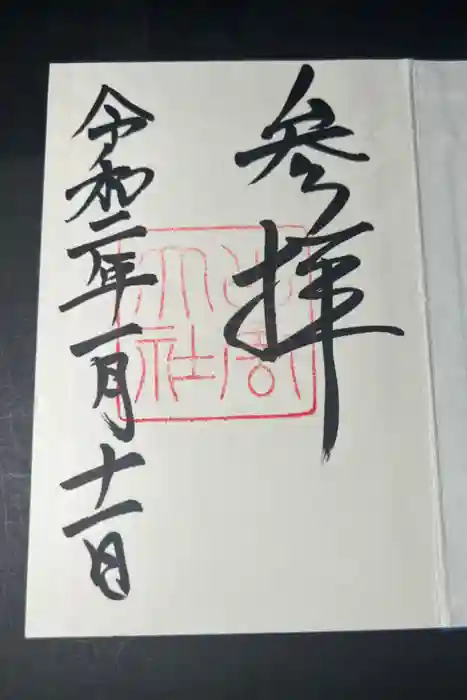 参拝
大社
令和二年一月十一日